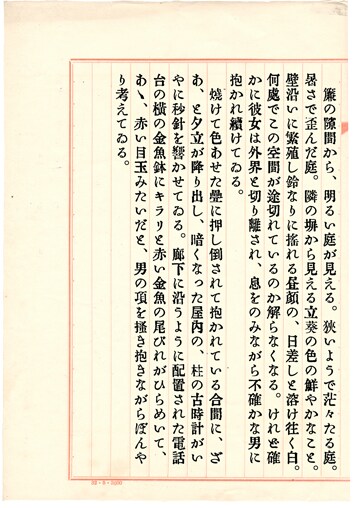 簾の隙間から、明るい庭が見える。狭いようで茫々たる庭。
暑さで歪んだ庭。隣の塀から見える立葵の色の鮮やかなこと。
壁沿いに繁殖し鈴なりに揺れる昼顔の、日差しと溶け往く白。
何處でこの空間が途切れているのか解らなくなる。けれど確
かに彼女は外界と切り離され、息をのみながら不確かな男に
抱かれ續けてゐる。
焼けて色あせた疊に押し倒されて抱かれている合間に、ざ
あ、と夕立が降り出し、暗くなった屋内の、柱の古時計がい
やに秒針を響かせてゐる。廊下に沿うように配置された電話
台の横の金魚鉢にキラリと赤い金魚の尾びれがひらめいて、
あゝ、赤い目玉みたいだと、男の項を掻き抱きながらぼんや
り考えてゐる。